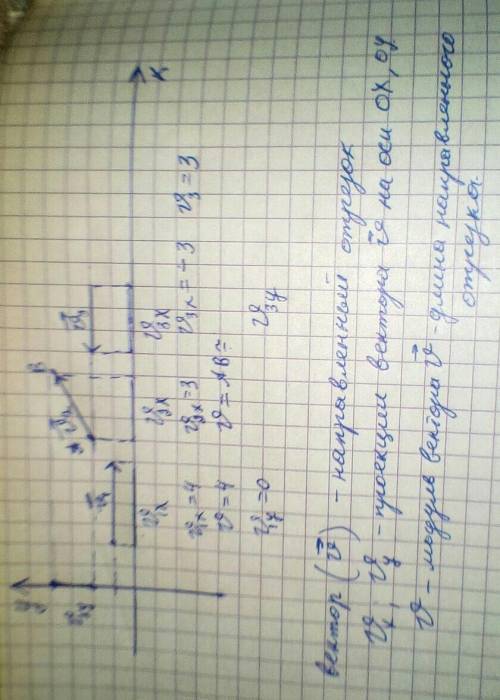 y
v⃗₁
v⃗₂
B
v⃗₃
v₂y
X
v₁x v₂x v₃x
v₁x = 4 v₂x = 3 v₃x = -3 v₃ = 3
v = 4 v = AB ≈
v₁y = 0 v₃y
вектор (v⃗) - направленный отрезок
vₓ, v_y - проекции вектора v⃗ на оси OX, OY
v - модуль вектора v⃗ - длина направленного
отрезка.